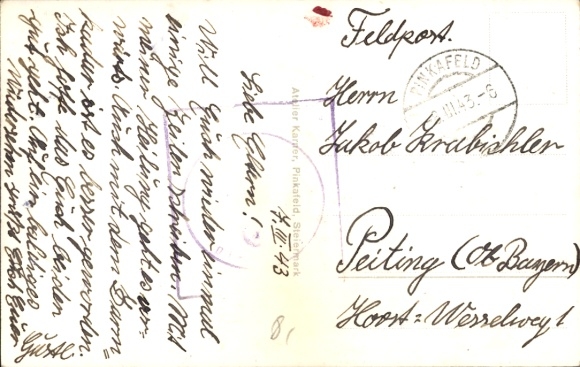 Feldpost.
PINKAFELD
III.43.-8
Herrn
Jakob Krabichler
Peiting (Ob Bayern)
Horst=Wesselweg 1
Atelier Karner, Pinkafeld, Steiermark
8,
7 III 43
Liebe Eltern!
Will Euch wieder einmal
einige Zeilen schreiben. Mit
meiner Heilung geht es vor=
wärts. Auch mit dem Darm=
ist es besser geworden.
Ich hoffe das Euch beiden
gut geht.
Wiedersehen Euer
Gustl